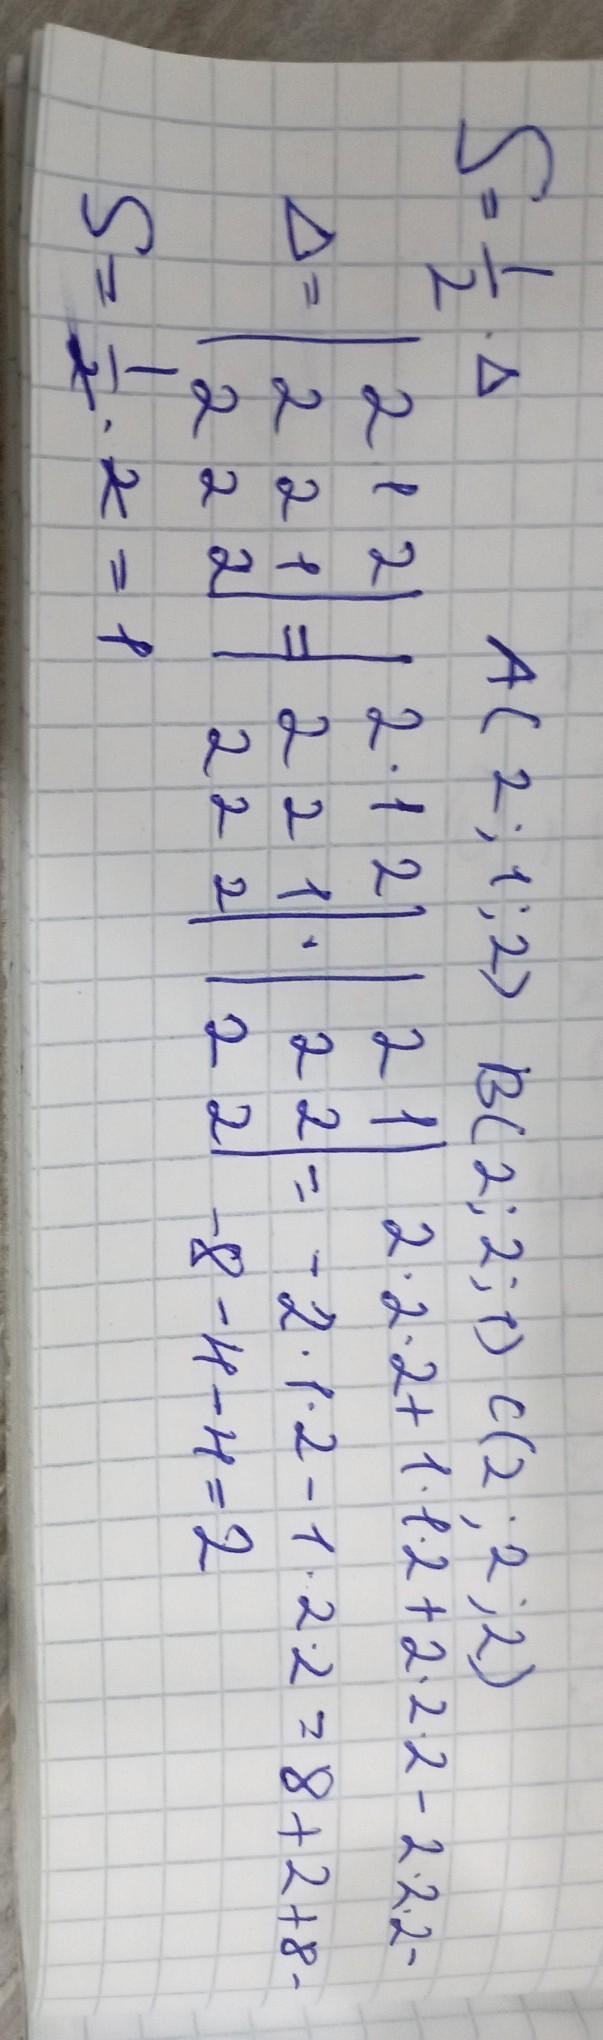 S = 1/2 · Δ   A(2; 1; 2) B(2; 2; 1) C(2; 2; 2)
Δ = | 2 1 2 | = | 2 · 1 2 | · | 2 1 | 2·2·2 + 1·1·2 + 2·2·2 - 2·2·2 -
| 2 2 1 | | 2 2 1 | | 2 2 | = - 2·1·2 - 1·2·2 = 8 + 2 + 8 -
| 2 2 2 | | 2 2 2 | | 2 2 | -8 - 4 - 4 = 2
S = 1/2 · 2 = 1